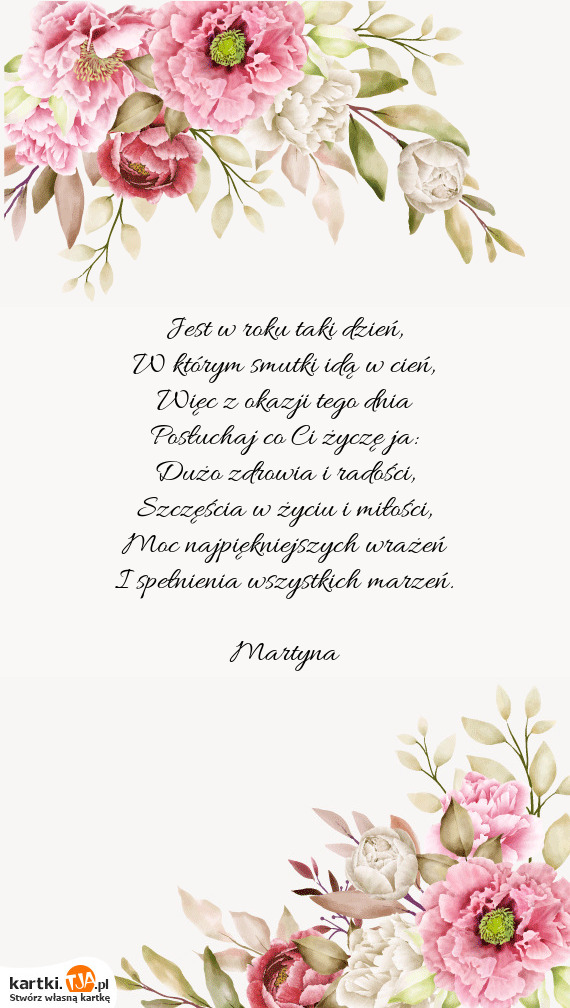 Jest w roku taki dzień,
W którym smutki idą w cień,
Więc z okazji tego dnia
Posłuchaj co Ci życzę ja:
Dużo zdrowia i radości,
Szczęścia w życiu i miłości,
Moc najpiękniejszych wrażeń
I spełnienia wszystkich marzeń.
Martyna
kartki.TJA.pl
Stwórz własną kartkę